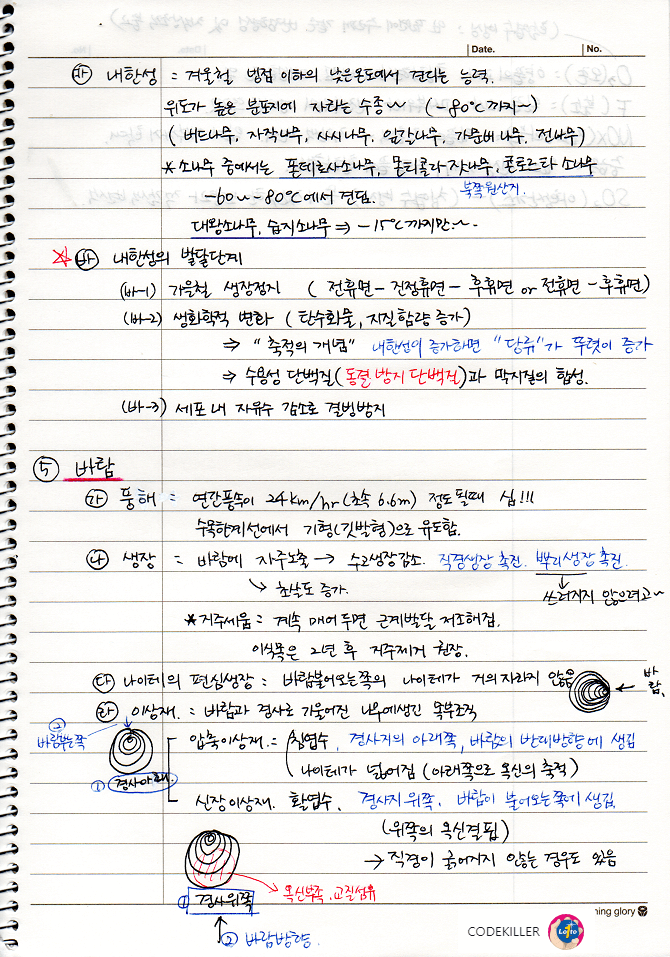 Date. No.
㉮ 내한성 = 겨울철 빙점 이하의 낮은온도에서 견디는 능력.
위도가 높은 분포지에 자라는 수종~ (-80℃까지~)
(버드나무, 자작나무, 사시나무, 잎갈나무, 가문비나무, 전나무)
* 소나무 중에서는 폰데르사소나무, 몬티콜라잣나무, 콘토르타 소나무
북쪽원산지.
-60~-80℃에서 견딤.
대왕소나무, 습지소나무 ⇒ -15℃까지만~.
☆ ㉳ 내한성의 발달단계
(바-1) 가을철 생장정지 (전휴면-진정휴면-후휴면 or 전휴면-후휴면)
(바-2) 생화학적 변화 (탄수화물, 지질함량 증가)
⇒ "축적의 개념" 내한성이 증가하면 "당류"가 뚜렷이 증가
⇒ 수용성 단백질(동결방지단백질)과 막지질의 합성.
(바-3) 세포 내 자유수 감소로 결빙방지
⑤ 바람
㉮ 풍해 = 연간풍속이 24km/hr (초속 6.6m) 정도 될때 심!!!
수목한계선에서 기형(깃발형)으로 유도함.
㉯ 생장 = 바람에 자주노출 → 수고생장감소. 직경생장 촉진. 뿌리생장 촉진.
↘ 초살도 증가. 쓰러지지 않으려고~
* 지주세움 = 계속 매어두면 근계발달 저조해짐.
이식목은 2년 후 지주제거 권장.
㉰ 나이테의 편심생장 = 바람불어오는쪽의 나이테가 거의자라지 않음 ← 바람.
㉱ 이상재. = 바람과 경사로 기울어진 나무에생긴 목부조직
② 바람부는쪽
압축이상재. = 침엽수, 경사지의 아래쪽, 바람의 반대방향에 생김
① 경사아래.
나이테가 넓어짐 (아래쪽으로 옥신의 축적)
신장이상재. 활엽수, 경사지 위쪽, 바람이 불어오는쪽에 생김
(위쪽의 옥신결핍)
→ 직경이 굵어지지 않는 경우도 있음
옥신부족. 교질섬유
① 경사위쪽
② 바람방향.
ning glory
CODEKILLER
Lotto